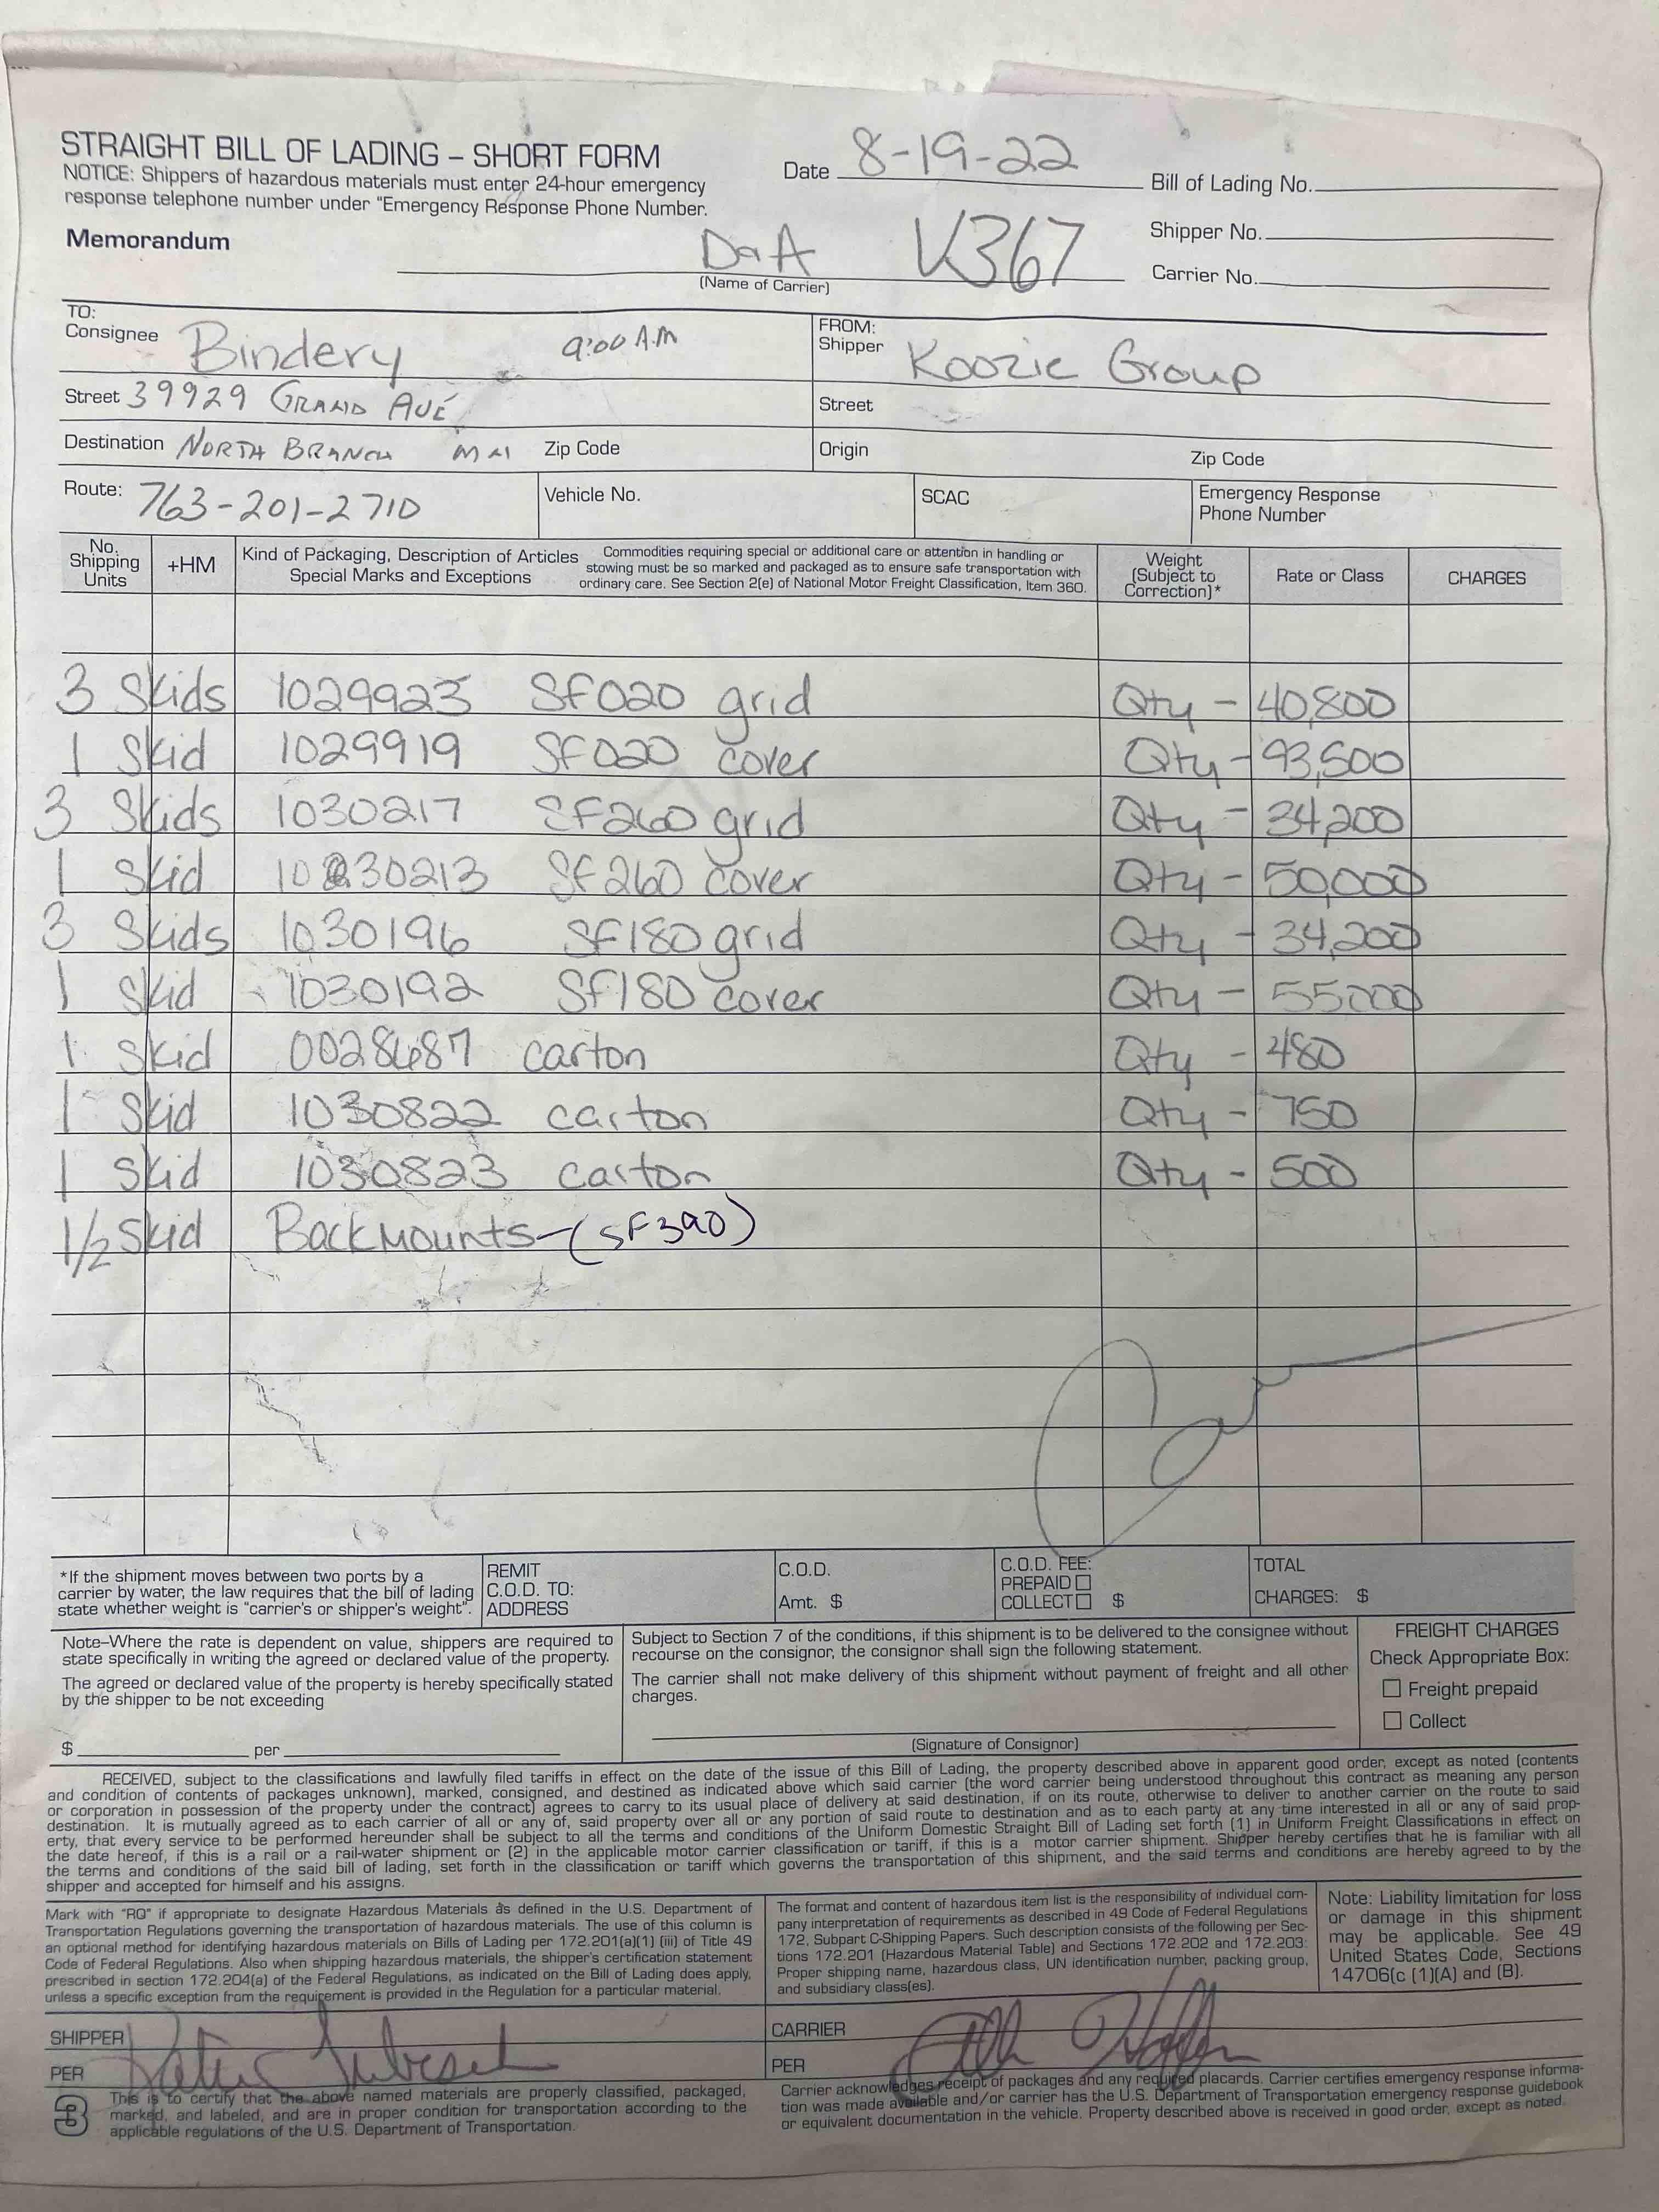 STRAIGHT BILL OF LADING – SHORT FORM
NOTICE: Shippers of hazardous materials must enter 24-hour emergency
response telephone number under "Emergency Response Phone Number.
Memorandum
Date 8-19-22
Bill of Lading No.
Shipper No.
Carrier No.
DaA V367
(Name of Carrier)
TO:
Consignee Bindery 9:00 A.M
FROM:
Shipper Koozie Group
Street 39929 GRAND AVE
Street
Destination NORTH BRANCH MN Zip Code
Origin Zip Code
Route: 763-201-2710
Vehicle No.
SCAC
Emergency Response
Phone Number
No.
Shipping
Units
+HM
Kind of Packaging, Description of Articles
Special Marks and Exceptions
Commodities requiring special or additional care or attention in handling or
stowing must be so marked and packaged as to ensure safe transportation with
ordinary care. See Section 2(e) of National Motor Freight Classification, Item 360.
Weight
(Subject to
Correction)*
Rate or Class
CHARGES
3 Skids 1029923 SF020 grid Qty - 40,800
1 Skid 1029919 SF020 cover Qty - 93,500
3 Skids 1030217 SF260 grid Qty - 34,200
1 Skid 1030213 SF260 cover Qty - 50,000
3 Skids 1030196 SF180 grid Qty - 34,200
1 Skid 1030192 SF180 cover Qty - 55000
1 Skid 0028687 carton Qty - 480
1 Skid 1030822 carton Qty - 750
1 Skid 1030823 carton Qty - 500
1/2 Skid Backmounts-(SF390)
*If the shipment moves between two ports by a
carrier by water, the law requires that the bill of lading
state whether weight is "carrier's or shipper's weight".
REMIT
C.O.D. TO:
ADDRESS
C.O.D.
Amt. $
C.O.D. FEE:
PREPAID
COLLECT $
TOTAL
CHARGES: $
Note–Where the rate is dependent on value, shippers are required to
state specifically in writing the agreed or declared value of the property.
The agreed or declared value of the property is hereby specifically stated
by the shipper to be not exceeding
$ per
Subject to Section 7 of the conditions, if this shipment is to be delivered to the consignee without
recourse on the consignor, the consignor shall sign the following statement.
The carrier shall not make delivery of this shipment without payment of freight and all other
charges.
(Signature of Consignor)
FREIGHT CHARGES
Check Appropriate Box:
Freight prepaid
Collect
RECEIVED, subject to the classifications and lawfully filed tariffs in effect on the date of the issue of this Bill of Lading, the property described above in apparent good order, except as noted (contents
and condition of contents of packages unknown), marked, consigned, and destined as indicated above which said carrier (the word carrier being understood throughout this contract as meaning any person
or corporation in possession of the property under the contract) agrees to carry to its usual place of delivery at said destination, if on its route, otherwise to deliver to another carrier on the route to said
destination. It is mutually agreed as to each carrier of all or any of, said property over all or any portion of said route to destination and as to each party at any time interested in all or any of said prop-
erty, that every service to be performed hereunder shall be subject to all the terms and conditions of the Uniform Domestic Straight Bill of Lading set forth (1) in Uniform Freight Classifications in effect on
the date hereof, if this is a rail or a rail-water shipment or (2) in the applicable motor carrier classification or tariff, if this is a motor carrier shipment. Shipper hereby certifies that he is familiar with all
the terms and conditions of the said bill of lading, set forth in the classification or tariff which governs the transportation of this shipment, and the said terms and conditions are hereby agreed to by the
shipper and accepted for himself and his assigns.
Mark with "RQ" if appropriate to designate Hazardous Materials as defined in the U.S. Department of
Transportation Regulations governing the transportation of hazardous materials. The use of this column is
an optional method for identifying hazardous materials on Bills of Lading per 172.201(a)(1) (iii) of Title 49
Code of Federal Regulations. Also when shipping hazardous materials, the shipper's certification statement
prescribed in section 172.204(a) of the Federal Regulations, as indicated on the Bill of Lading does apply,
unless a specific exception from the requirement is provided in the Regulation for a particular material.
The format and content of hazardous item list is the responsibility of individual com-
pany interpretation of requirements as described in 49 Code of Federal Regulations
172, Subpart C-Shipping Papers. Such description consists of the following per Sec-
tions 172.201 (Hazardous Material Table) and Sections 172.202 and 172.203:
Proper shipping name, hazardous class, UN identification number, packing group,
and subsidiary class(es).
Note: Liability limitation for loss
or damage in this shipment
may be applicable. See 49
United States Code, Sections
14706(c (1)(A) and (B).
SHIPPER
PER
CARRIER
PER
3
This is to certify that the above named materials are properly classified, packaged,
marked, and labeled, and are in proper condition for transportation according to the
applicable regulations of the U.S. Department of Transportation.
Carrier acknowledges receipt of packages and any required placards. Carrier certifies emergency response informa-
tion was made available and/or carrier has the U.S. Department of Transportation emergency response guidebook
or equivalent documentation in the vehicle. Property described above is received in good order, except as noted.